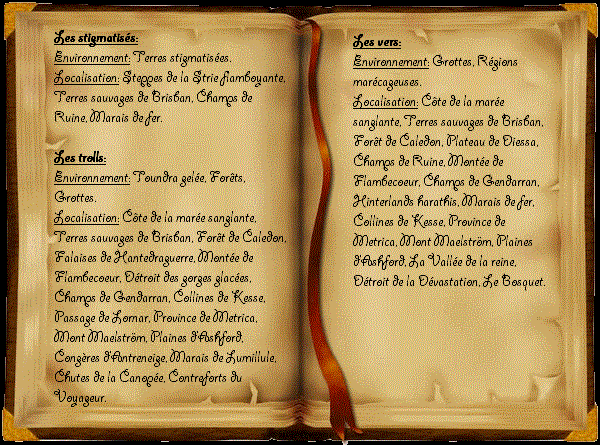 Les stigmatisés:
Environnement: Terres stigmatisées.
Localisation: Steppes de la Strie flamboyante,
Terres sauvages de Brisban, Champs de
Ruine, Marais de fer.
Les trolls:
Environnement: Toundra gelée, Forêts,
Grottes.
Localisation: Côte de la marée sanglante,
Terres sauvages de Brisban, Forêt de Caledon,
Falaises de Hantedraguerre, Montée de
Flambecoeur, Détroit des gorges glacées,
Champs de Gendarran, Collines de Kesse,
Passage de Lornar, Province de Metrica,
Mont Maelström, Plaines d'Ashford,
Congères d'Antreneige, Marais de Lumillule,
Chutes de la Canopée, Contreforts du
Voyageur.
Les vers:
Environnement: Grottes, Régions
marécageuses.
Localisation: Côte de la marée
sanglante, Terres sauvages de Brisban,
Forêt de Caledon, Plateau de Diessa,
Champs de Ruine, Montée de
Flambecoeur, Champs de Gendarran,
Hinterlands harathis, Marais de fer,
Collines de Kesse, Province de
Metrica, Mont Maelström, Plaines
d'Ashford, La Vallée de la reine,
Détroit de la Dévastation, Le Bosquet.